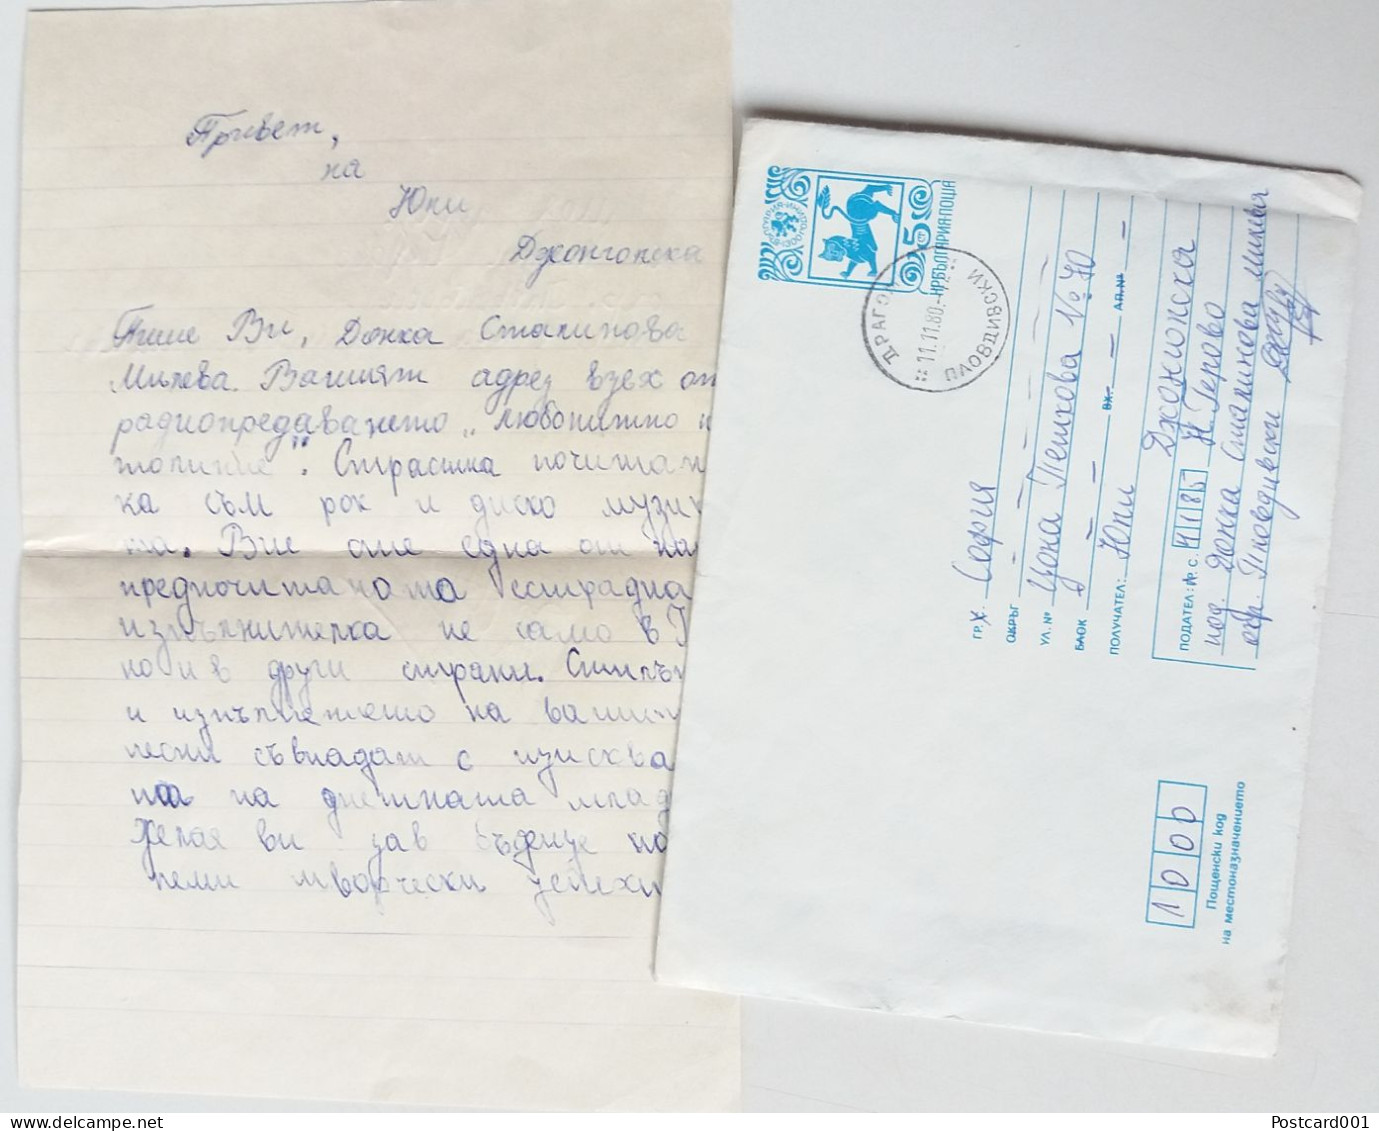 Привет,
на
Юпи
Джонгопска
Пише Ви, Донка Сталинова
Милева. Вашият адрез взех от
радиопредаването „любопитно
Страстна почитат
ка съм рок и диско музик
та. Вие сте една от на
предпочитаната естрадна
изпълнителка не само в
но и в други страни. Стилъ
и изпълнението на ваши
песни съвпадат с изисква
та на днешната млад
Желая ви зав бъдеще но
леми творчески успехи
5 НР БЪЛГАРИЯ·ПОЩА
ДРАГО
11.11.80.
ПЛОВДИВСКИ
ГР. Х. София
ОКРЪГ
УЛ. № Цона Петкова № 70
БЛОК ВХ. АП. №
ПОЛУЧАТЕЛ: Юпи
Джонюпска
ПОДАТЕЛ: П. С. 4185 Н. Герово
под. Донка Сталинова Милева
окр. Пловдивски
1000
Пощенски код
на местоназначението
Postcard001